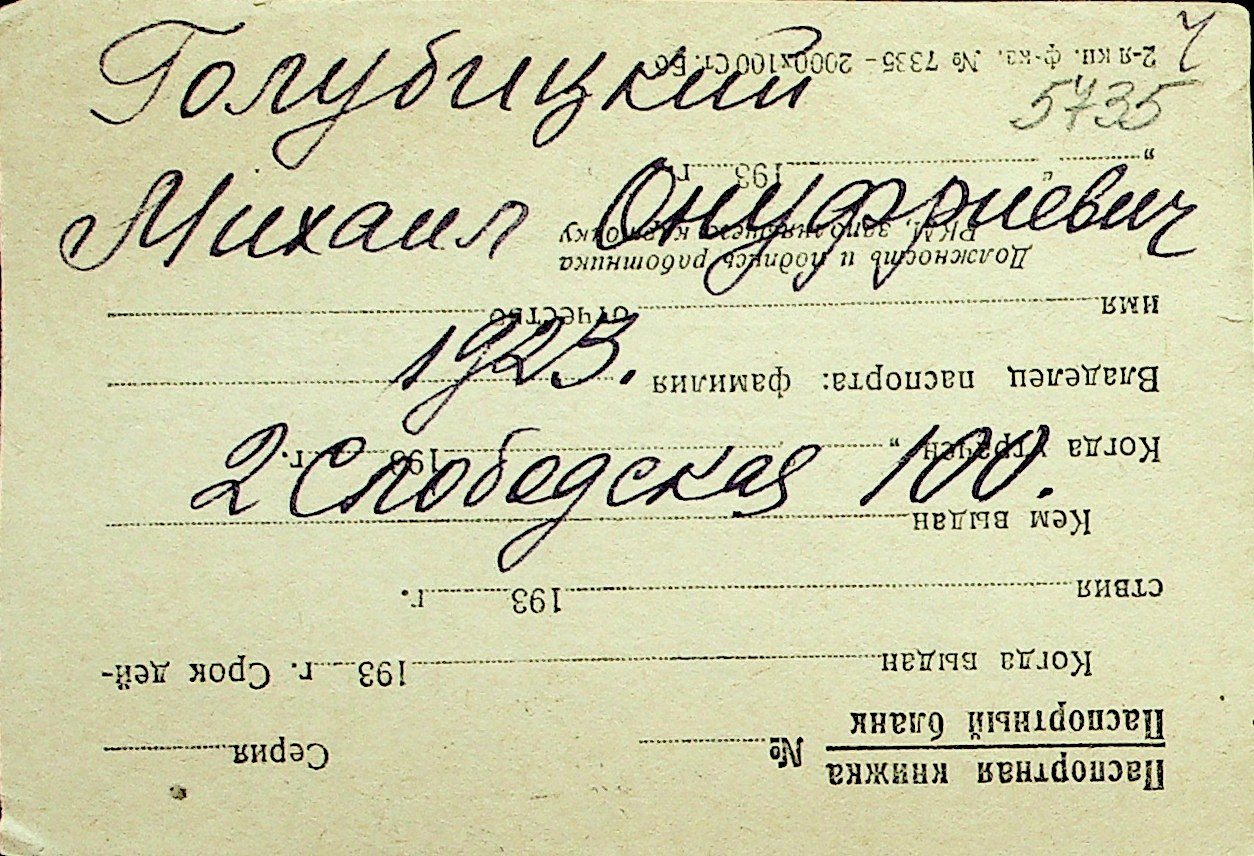 Голубицкий
Михаил Онуфриевич
1923.
2 Слободская 100.
Ч
5735
Паспортная книжка
Паспортный бланк
№ Серия
Когда выдан 193 г. Срок дей-
ствия 193 г.
Кем выдан
Когда утрачен „ 193 г.
Владелец паспорта: фамилия
имя отчество
Должность и подпись работника
РКМ, заполнявшего карточку
„ " 193 г.
2-я кн. ф-ка. № 7335 – 2000х100 Ст. Бб